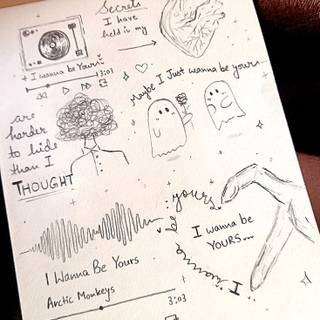 Secrets
I have
held in my
I wanna be Yours
3:03
Maybe I Just wanna be yours
are
harder
to hide
than I
THOUGHT
yours
I wanna be
YOURS...
I wanna
I Wanna Be Yours
Arctic Monkeys
3:03